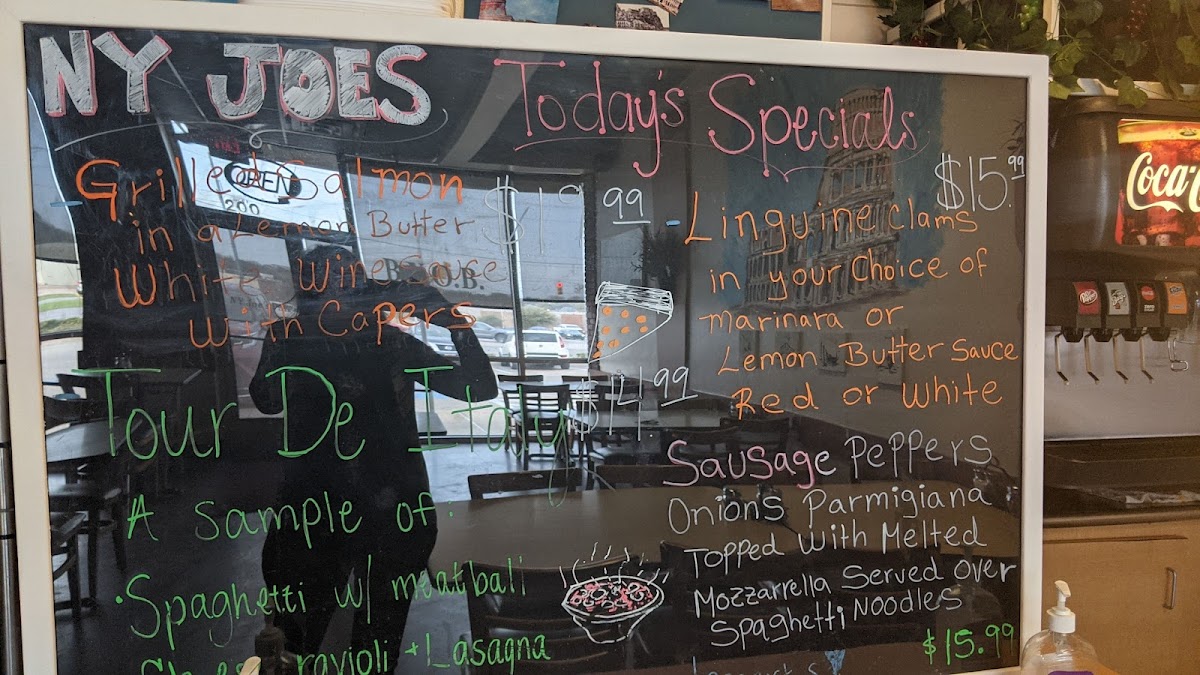 NY JOES Today's Specials
Grilled Salmon
in a Lemon Butter
White Wine Sauce
with Capers
OPEN
200
B.Y.O.B.
Tour De Italy $14.99
A sample of:
• Spaghetti w/ meatball
ravioli + Lasagna
$15.99
Linguine Clams
in your Choice of
marinara or
Lemon Butter Sauce
Red or White
Sausage Peppers
Onions Parmigiana
Topped with Melted
Mozzarrella Served Over
Spaghetti Noodles
$15.99
Coca-C